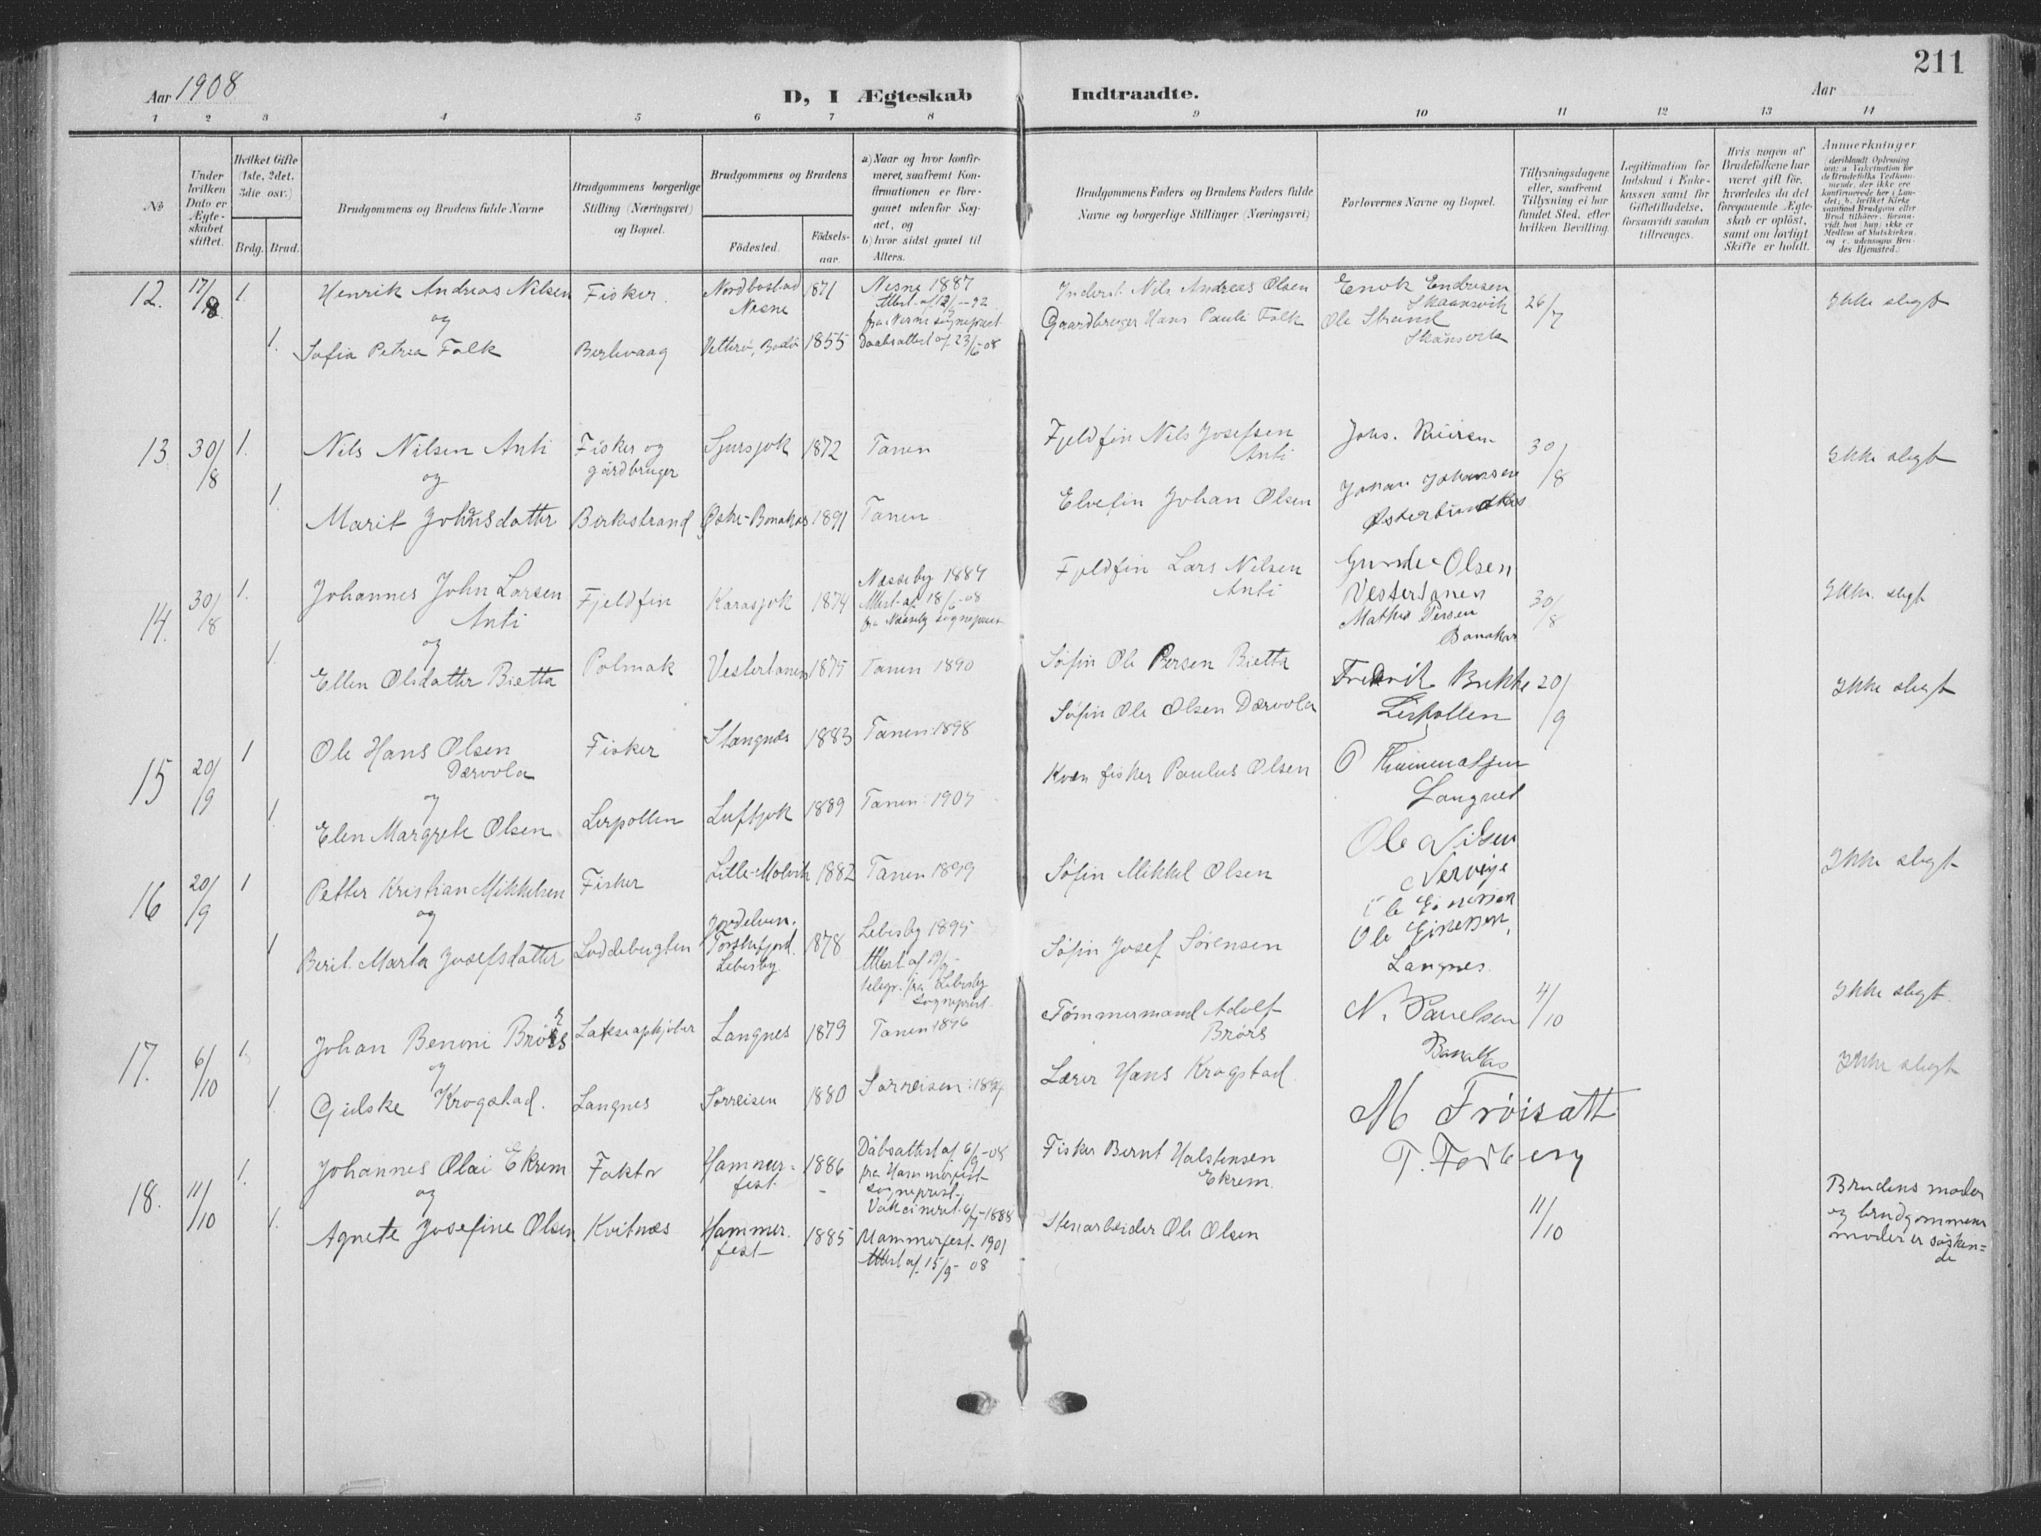 211
Aar 1908
D, I Ægteskab
Indtraadte.
Aar
1 2 3 4 5 6 7 8 9 10 11 12 13 14
No
Under hvilken Dato er Ægteskabet stiftet.
Hvilket Gifte (1ste, 2det, 3die osv.)
Brdg. Brud.
Brudgommens og Brudens fulde Navne
Brudgommens borgerlige Stilling (Næringsvei) og Bopæl.
Brudgommens og Brudens
Födested.
Födselsaar.
a) Naar og hvor konfirmeret, saafremt Konfirmationen er foregaaet udenfor Sognet, og
b) hvor sidst gaaet til Alters.
Brudgommens Faders og Brudens Faders fulde Navne og borgerlige Stillinger (Næringsvei)
Forlovernes Navne og Bopæl.
Tillysningsdagene eller, saafremt Tillysning ei har fundet Sted, efter hvilken Bevilling.
Legitimation for Indskud i Enkekassen samt for Giftetilladelse, forsaavidt saadan tiltrænges.
Hvis nogen af Brudefolkene har været gift för, hvorledes da det foregaaende Ægteskab er oplöst, samt om lovligt Skifte er holdt.
Anmærkninger
12. 17/8 1. Henrik Andreas Nilsen Fisker. Nordbostad Nesne 1871 Nesne 1887
fra Nesne sogneprest
Inderst Nils Andreas Olsen
Enok Endresen Skaansvik 26/7 Ikke slegt
og
1. Sofia Petrea Falk Berlevaag 1855 Daabsattest af 23/6 08
Gaardbruger Hans Pauli Falk Ole Strand
13. 30/8 1. Nils Nilsen Anti Fisker og gårdbruger Sjursjok 1872 Tanen
Fjeldfin Nils Josefsen Anti Johs. 30/8 Ikke slegt
og
1. Marit Johnsdatter Birkestrand 1891 Tanen
Elvefin Johan Olsen Johan Johansen
14. 30/8 1. Johannes John Larsen Anti Fjeldfin Karasjok 1874 Næsseby 1889
Attest af 18/6-08
fra Næsseby sogneprest
Fjeldfin Lars Nilsen Anti Olsen Vestertanen 30/8 Ikke slegt
og
1. Ellen Olsdatter Bietta Polmak Vestertanen 1875 Tanen 1890
Søfin Ole Persen Bietta Mathis Persen Bonakas
15 20/9 1 Ole Hans Olsen Dærvola Fisker Stangnes 1883 Tanen: 1898
Søfin Ole Olsen Dærvola Fredrik Bukke Leirpollen 20/9 Ikke slegt
og
1. Elen Margrete Olsen Leirpollen Luftjok 1889 Tanen: 1905
Kvæn fisker Paulus Olsen Langnes
16 20/9 1 Petter Kristian Mikkelsen Fisker Lille-Molvik 1882 Tanen 1899
Søfin Mikkel Olsen Ole Nilsen Ikke slegt
og
1 Berit Marta Josefsdatter Loddebugten Torskefjord. Lebesby 1878 Lebesby 1895
telegr. fra Lebesby sogneprest.
Søfin Josef Sørensen Ole Einersen, Langnes.
17. 6/10 1. Johan Benoni Brørs Lakseopkjøber Langnes 1879 Tanen 1896
Tømmermand Adolf Brørs N. Pauelsen 4/10 Ikke slegt
Bonakas
og
1. Gidske Krogstad. Langnes Sørreisen 1880
Lærer Hans Krogstad. M Frøisatt Ikke slegt
18. 11/10 1. Johannes Olai Ekrem Faktor Hammerfest. 1886 Dåbsattest af 6/9-08
fra Hammerfest sogneprest.
Vakcineret 1888
Fisker Bernt Halstensen Ekrem.
T. Forberg
og
1. Agnete Josefine Olsen Kvitnæs Hammerfest 1885 Hammerfest 1901
Attest af 15/9 08
Stenarbeider Ole Olsen 11/10
Brudens moder
og brudgommens
moder er søsken=
de